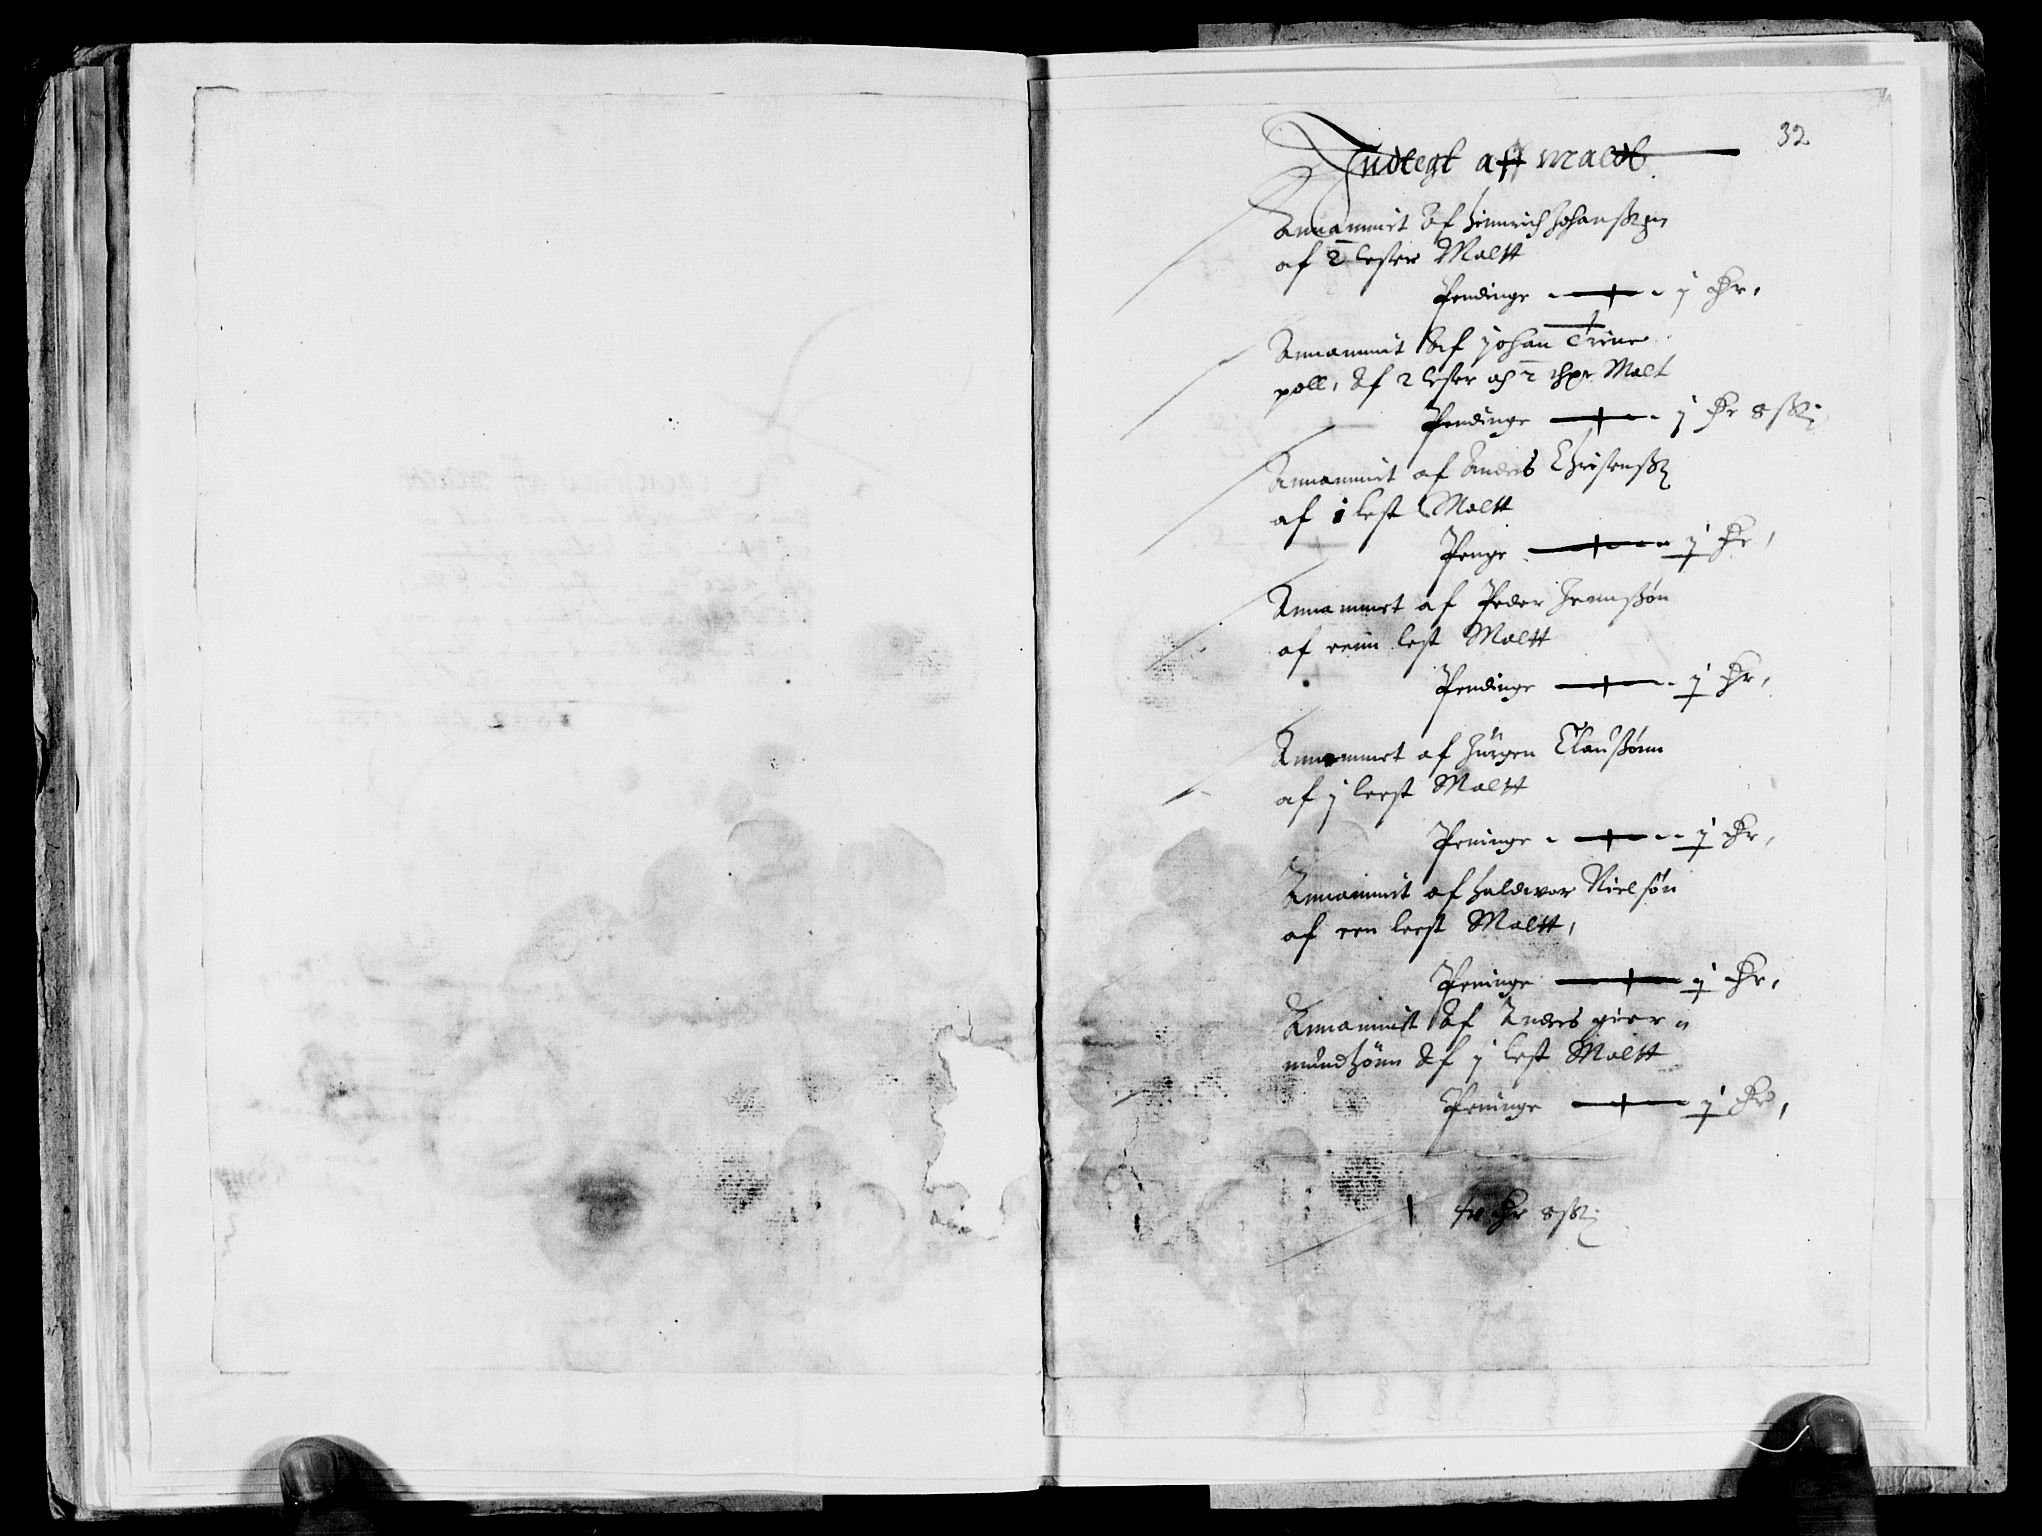 32
Indtegt aff Maltt
Annammit Af Hinnrich Johanßen
af 2 lester Maltt
Pendinge j Dlr.
Annammit Af Johan Trine
poll, Af 2 lester och 2 Malt
Pendinge j Dlr 8 ß
Annammit af Anders Christenß
af 1 lest Maltt
Penge j Dlr,
Annammet af Peder Jennßøn
af eenn lest Maltt
Pendinge j Dlr,
Annammet af Jürgen Claußønn
af j leest Maltt
Peninge j Dlr,
Annammit af Haldwor Nielsøn
af een leest Maltt,
Peninge j Dlr,
Annammit Af Anders
Af j lest Maltt
Peninge j Dlr,
Dlr 8 ß